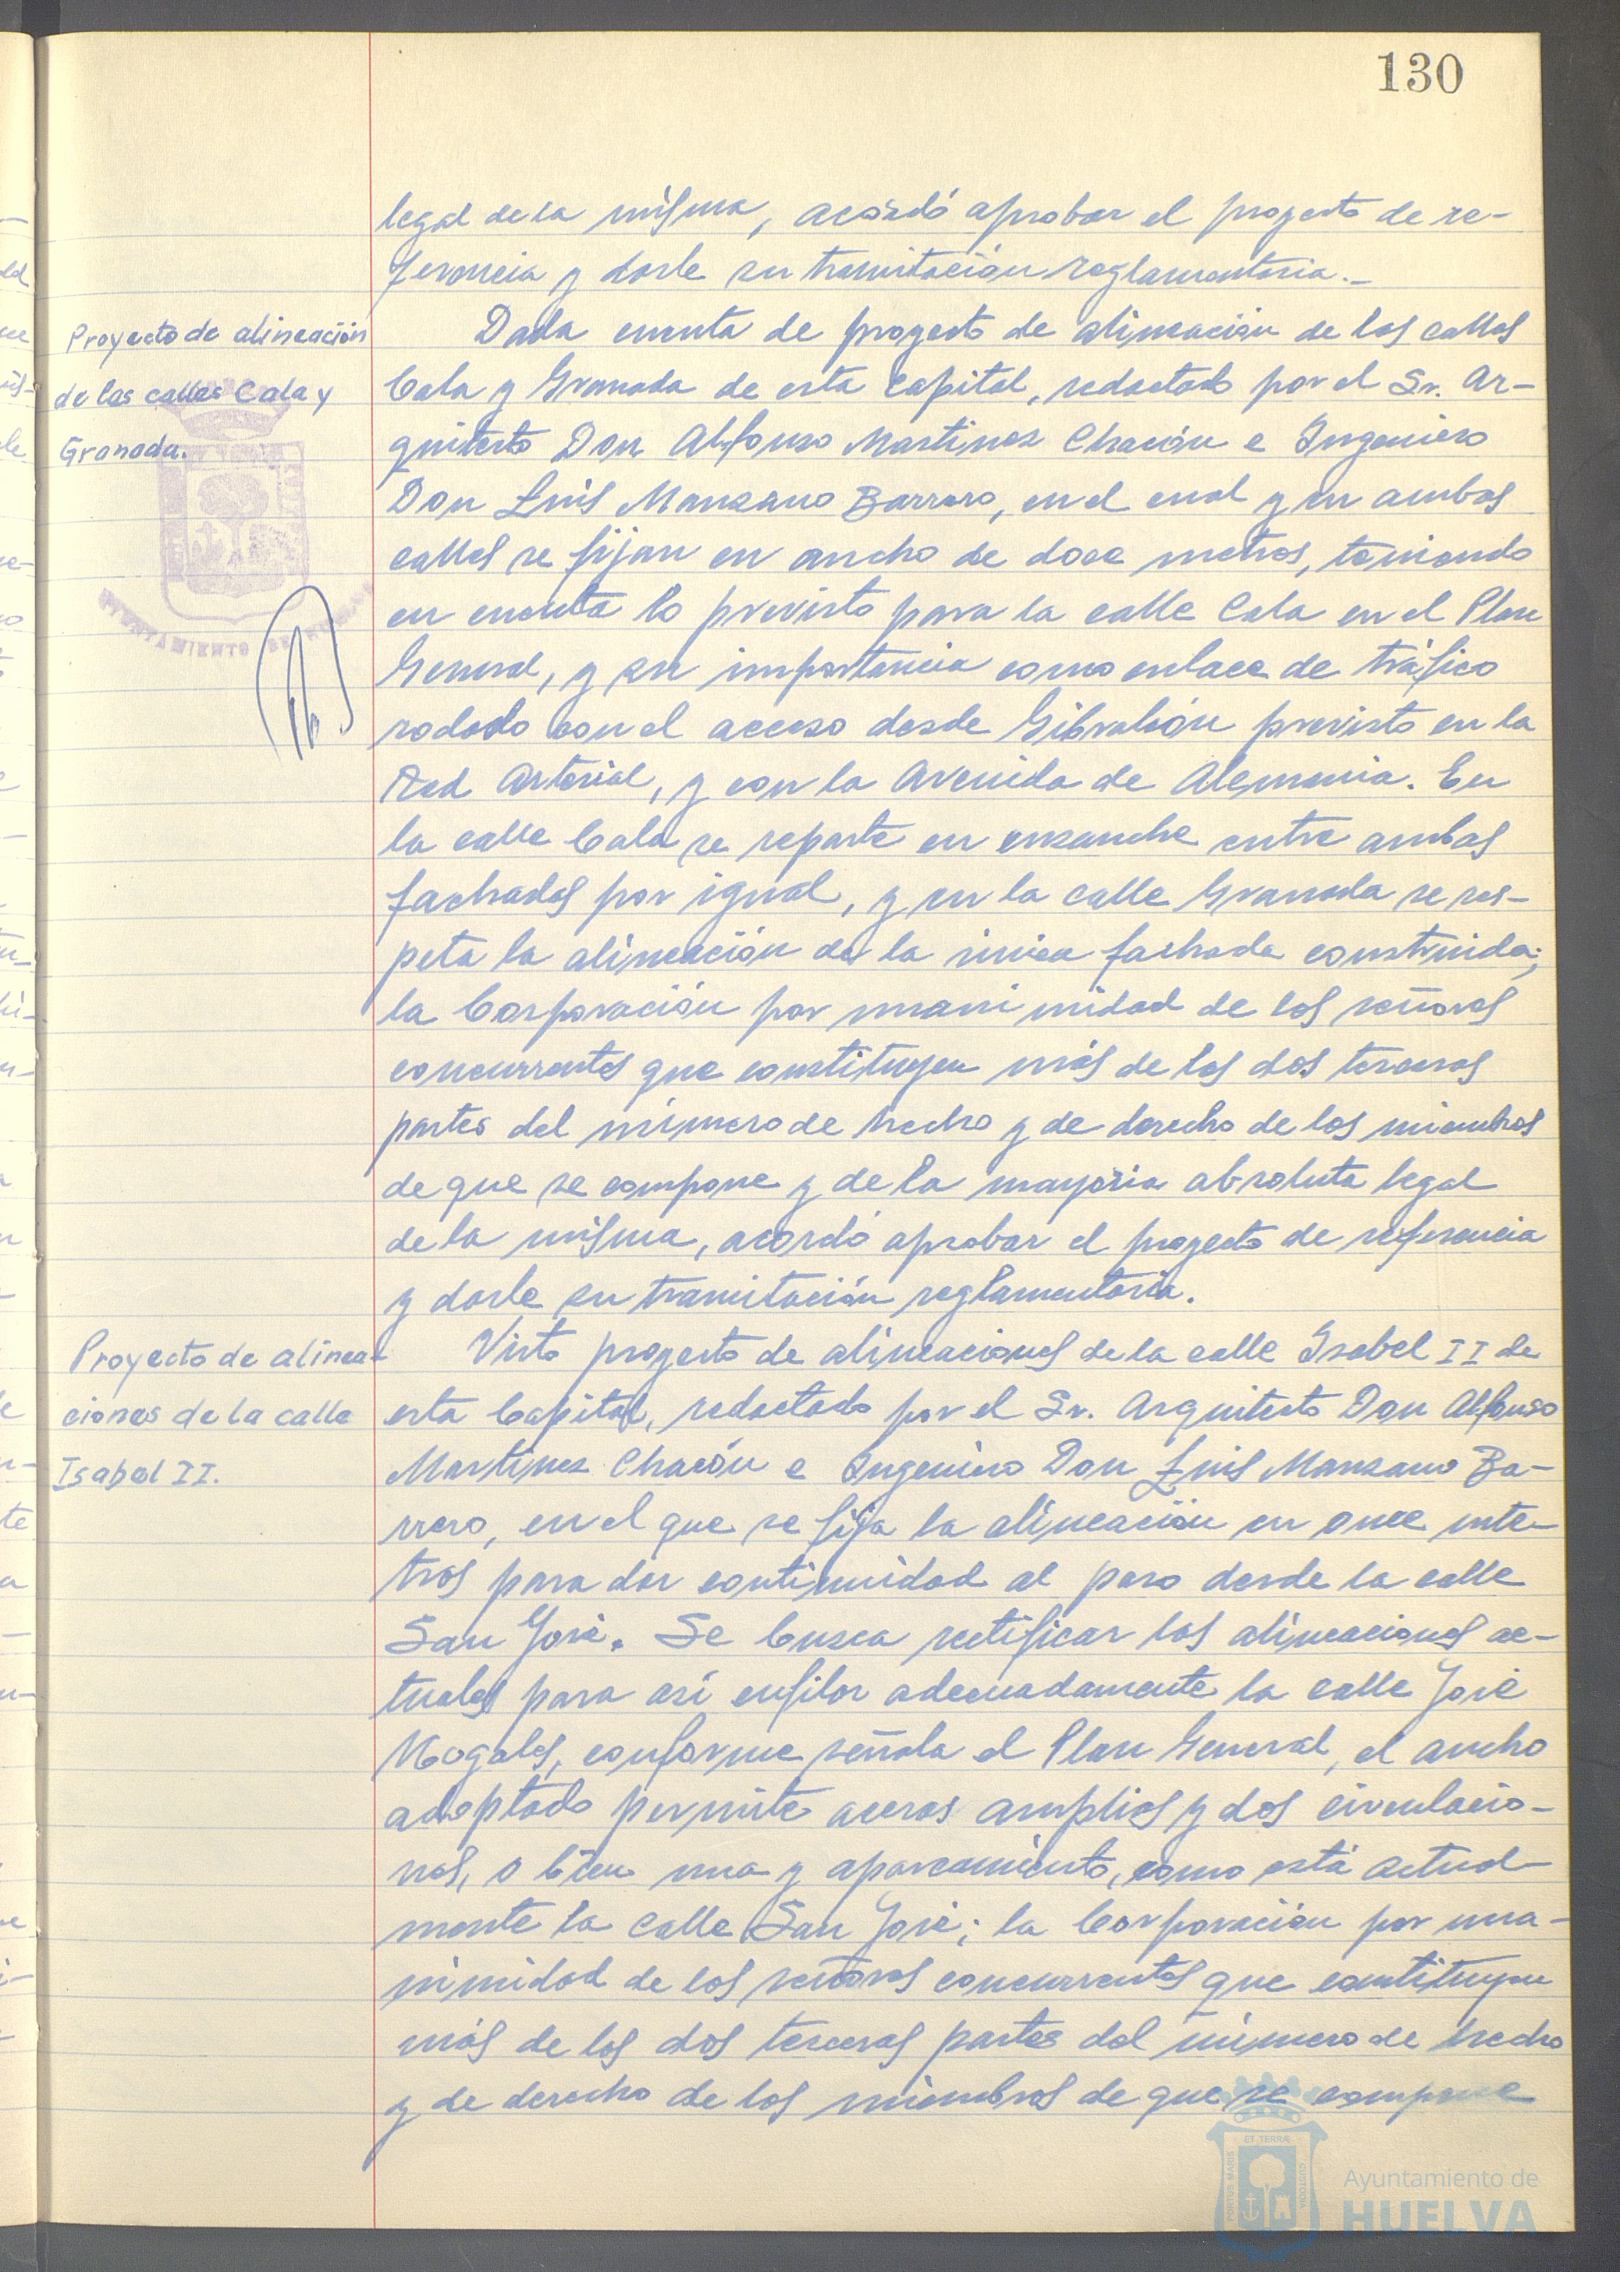 130
legal de la misma, acordó aprobar el proyecto de re-
ferencia y darle su tramitación reglamentaria.-
Proyecto de alineación
de las calles Cala y
Granada.
Dada cuenta de proyecto de alineación de las calles
Cala y Granada de esta capital, redactado por el Sr. Ar-
quitecto Don Alfonso Martinez Chacón e Ingeniero
Don Luis Manzano Barrero, en el cual y en ambas
calles se fijan en ancho de doce metros, teniendo
en cuenta lo previsto para la calle Cala en el Plan
General, y su importancia como enlace de tráfico
rodado con el acceso desde Gibraleón previsto en la
Red Arterial, y con la Avenida de Alemania. En
la calle Cala se reparte en ensanche entre ambas
fachadas por igual, y en la calle Granada se res-
peta la alineación de la única fachada construida;
la Corporación por unanimidad de los señores
concurrentes que constituyen más de las dos terceras
partes del número de hecho y de derecho de los miembros
de que se compone y de la mayoria absoluta legal
de la misma, acordó aprobar el proyecto de referencia
y darle su tramitación reglamentaria.
Proyecto de alinea-
ciones de la calle
Isabel II.
Visto proyecto de alineaciones de la calle Isabel II de
esta Capital, redactado por el Sr. Arquitecto Don Alfonso
Martinez Chacón e Ingeniero Don Luis Manzano Ba-
rrero, en el que se fija la alineación en once me-
tros para dar continuidad al paso desde la calle
San José. Se busca rectificar las alineaciones ac-
tuales para así enfilar adecuadamente la calle José
Nogales, conforme señala el Plan General, el ancho
adoptado permite aceras amplias y dos circulacio-
nes, o bien una y aparcamiento, como está actual-
mente la calle San José; la Corporación por una-
nimidad de los señores concurrentes que constituyen
más de las dos terceras partes del número de hecho
y de derecho de los miembros de que se compone
AYUNTAMIENTO DE HUELVA
PORTUS MARIS
ET TERRÆ
CUSTODIA
Ayuntamiento de
HUELVA